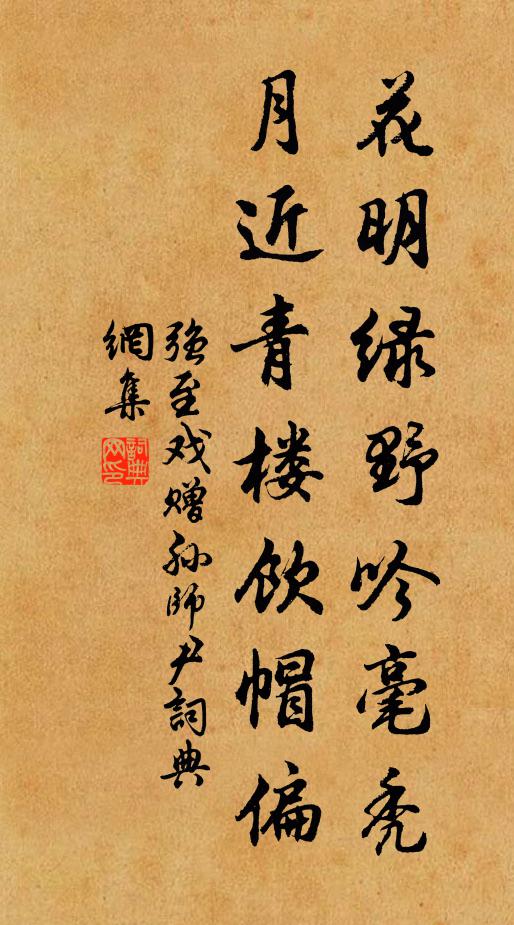 花明绿野吟毫秃
月近青楼饮帽偏
强至戏赠孙師尹詞典
網集
詞典
网印